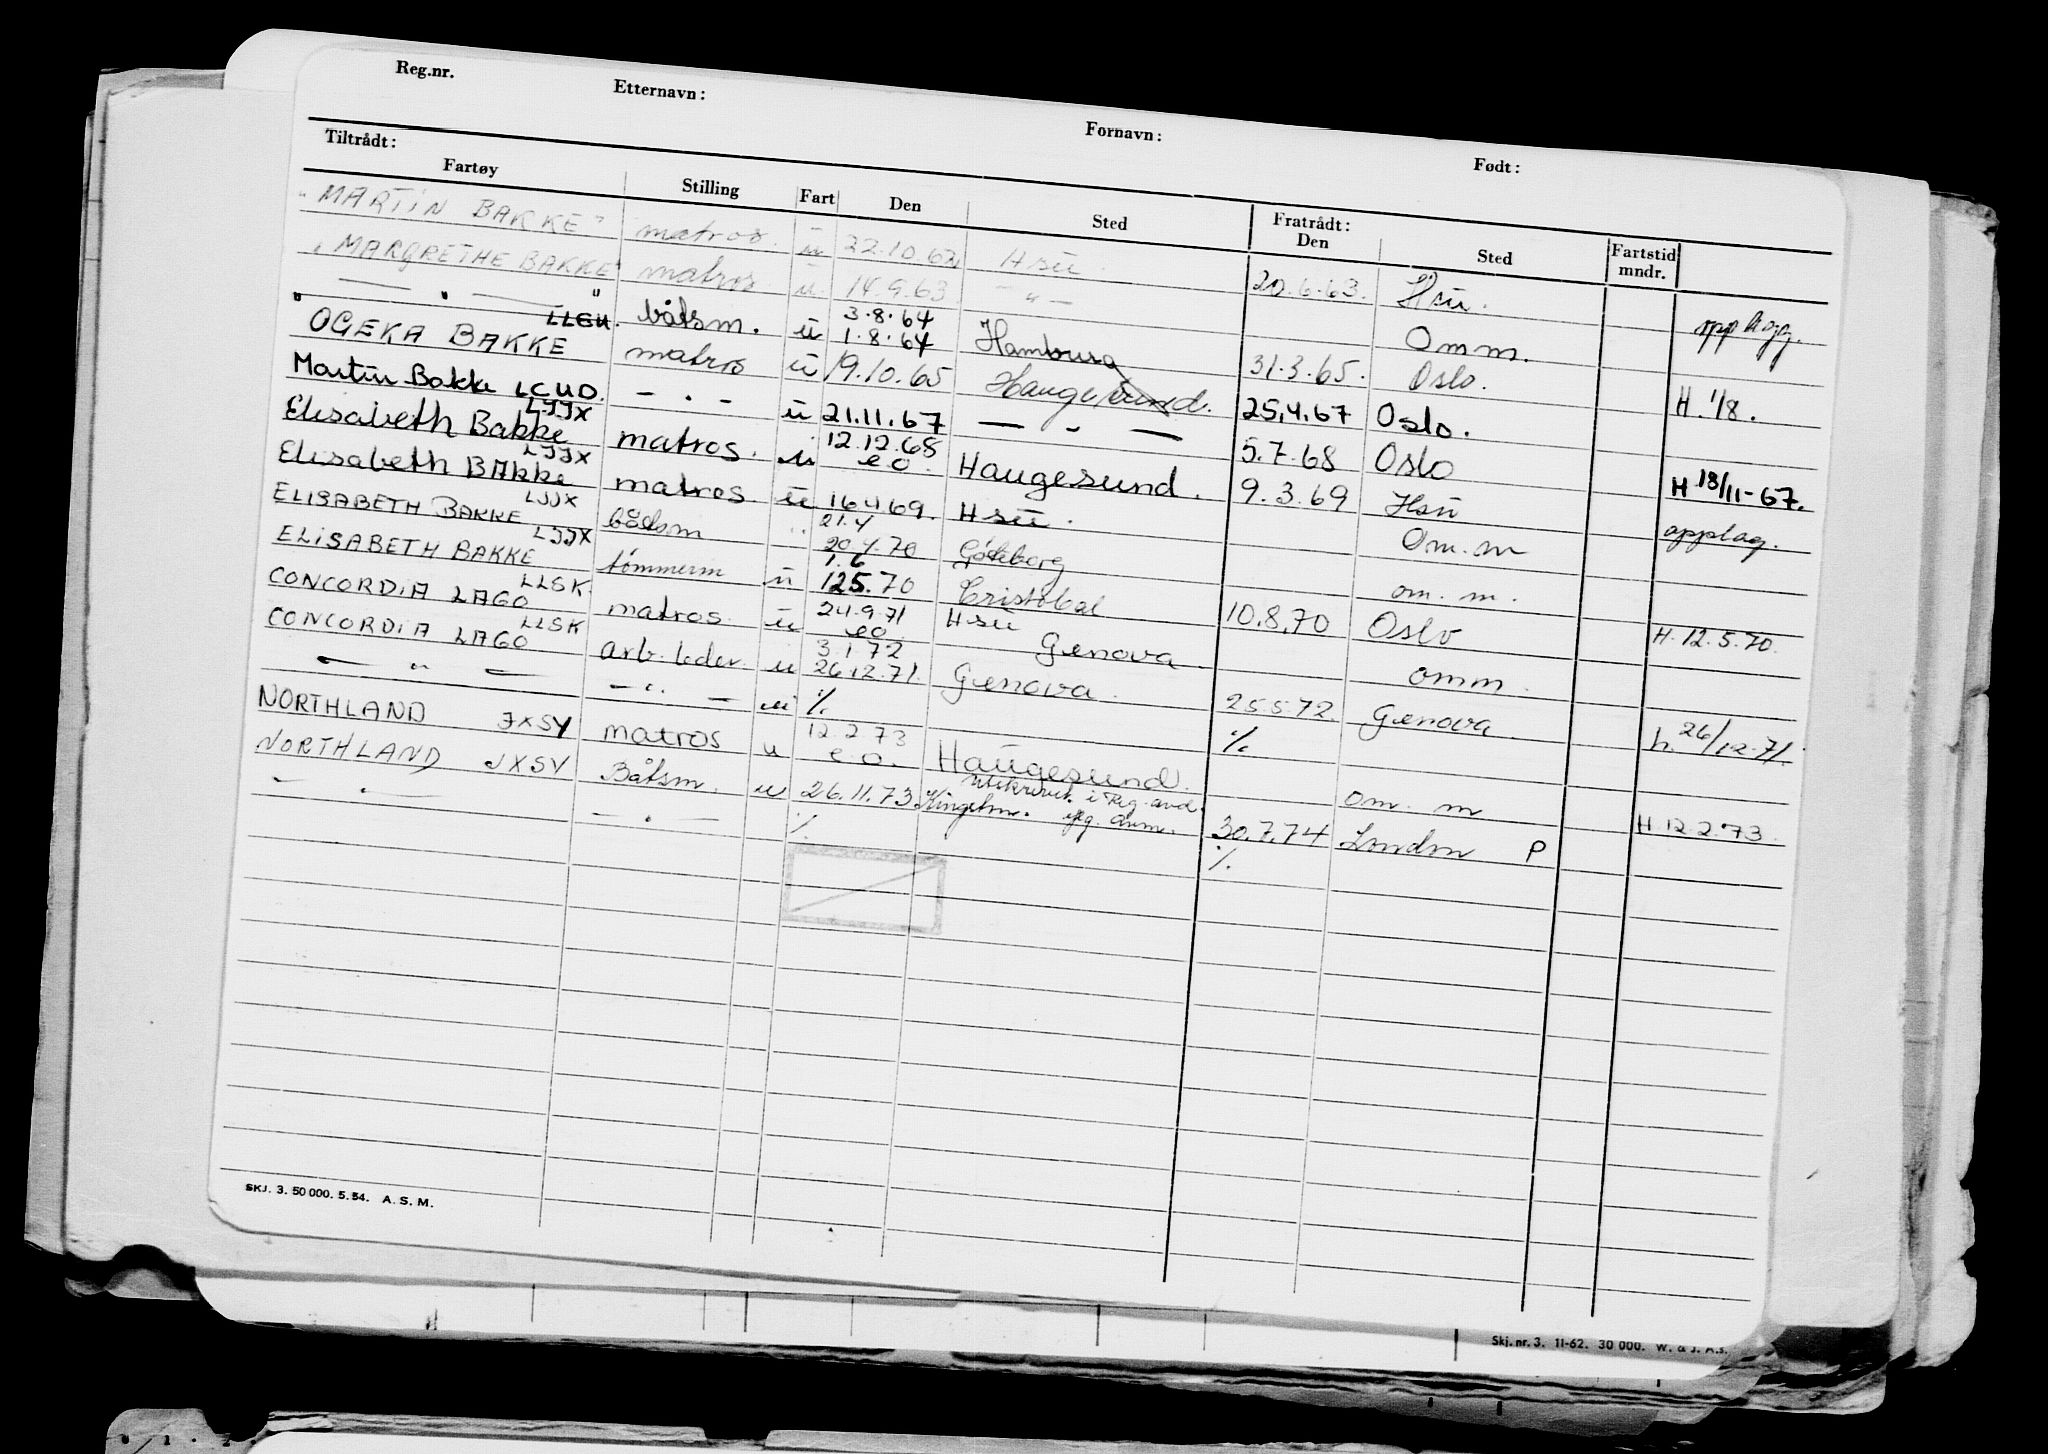 Reg.nr. Etternavn: Fornavn: Født:
Tiltrådt: Fratrådt:
Fartøy Stilling Fart Den Sted Den Sted Fartstid mndr.
"MARTIN BAKKE" matros. ū 22.10.62 Hsu. 20.6.63. Hsu. opplagg.
"MARGRETHE BAKKE" matros ū 14.9.63 — " — Omm.
— " — " LLGU. båtsm. ū 3.8.64 1.8.64 Hamburg 31.3.65. Oslo. H. 1/8.
"OGEKA BAKKE matros ū 19.10.65 Haugesund. 25.4.67 Oslo.
Martin Bakke LCUO. — . — ū 21.11.67 — " — 5.7.68 Oslo H 18/11-67.
Elisabeth Bakke LJJX matros. ū 12.12.68 eo. Haugesund. 9.3.69 Hsu opplag.
Elisabeth BAkke LJJX matros ū 16 4 69. Hsu. Om. m
ELISABETH BAKKE LJJX båtsm " 21.4 20.4.70 Göteborg om. m.
ELISABETH BAKKE LJJX tømmerm ū 1.6 12.5.70 Cristobal 10.8.70 Oslo H. 12.5.70.
CONCORDIA LAGO LLSK. matros. ū 24.9.71 eo Hsu Genova omm.
CONCORDIA LAGO LLSK arb.leder. u 3.1.72 26.12.71. Genova. 25.5.72. Genova h. 26/12.71.
— " — — " — u ⁒ ⁒
NORTHLAND JXSY matros u 12.2.73 e.o. Haugesund. om. m H. 12.2.73.
NORTHLAND JXSY Båtsm. u 26.11.73 Kingslm. 30.7.74 London P
— " — — " — ⁒ ⁒
SKJ. 3. 50 000. 5. 54. A. S. M.
Skj. nr. 3. 11-62. 30 000. W. & J. A.s.